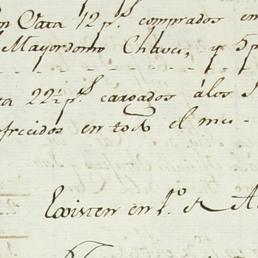 en Data 12 p.s comprados en
Mayordomo Chaves, y 5 p
ea 22½ p.s cargados alos S
frecidos en todo el mes.
Existen en 1.º de A